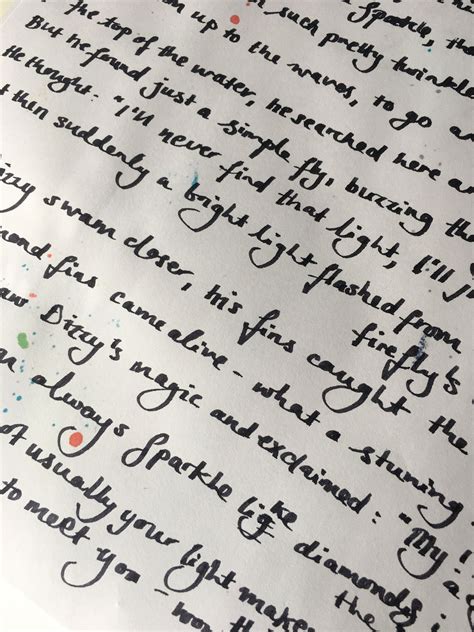 Sparkle, th
m such pretty twinkle
m up to the waves, to go a
the top of the water, he searched here a
But he found just a simple fly, buzzing the
He thought: "I'll never find that light, I'll j
t then suddenly a bright light flashed from
izzy swam closer, his fins caught the firefly's
mond fins came alive - what a stuning
aw Dizzy's magic and exclaimed: "My
an always Sparkle like diamonds i
ot usually your light makes the
to meet you - won